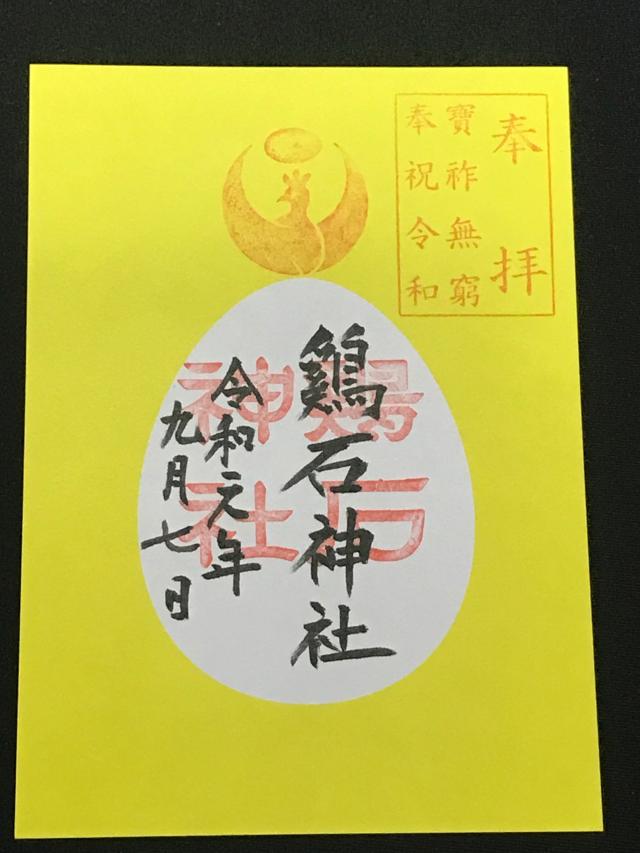 奉拝
寶祚無窮
奉祝令和
鷄石神社
令和元年
九月七日
鶏石
神社